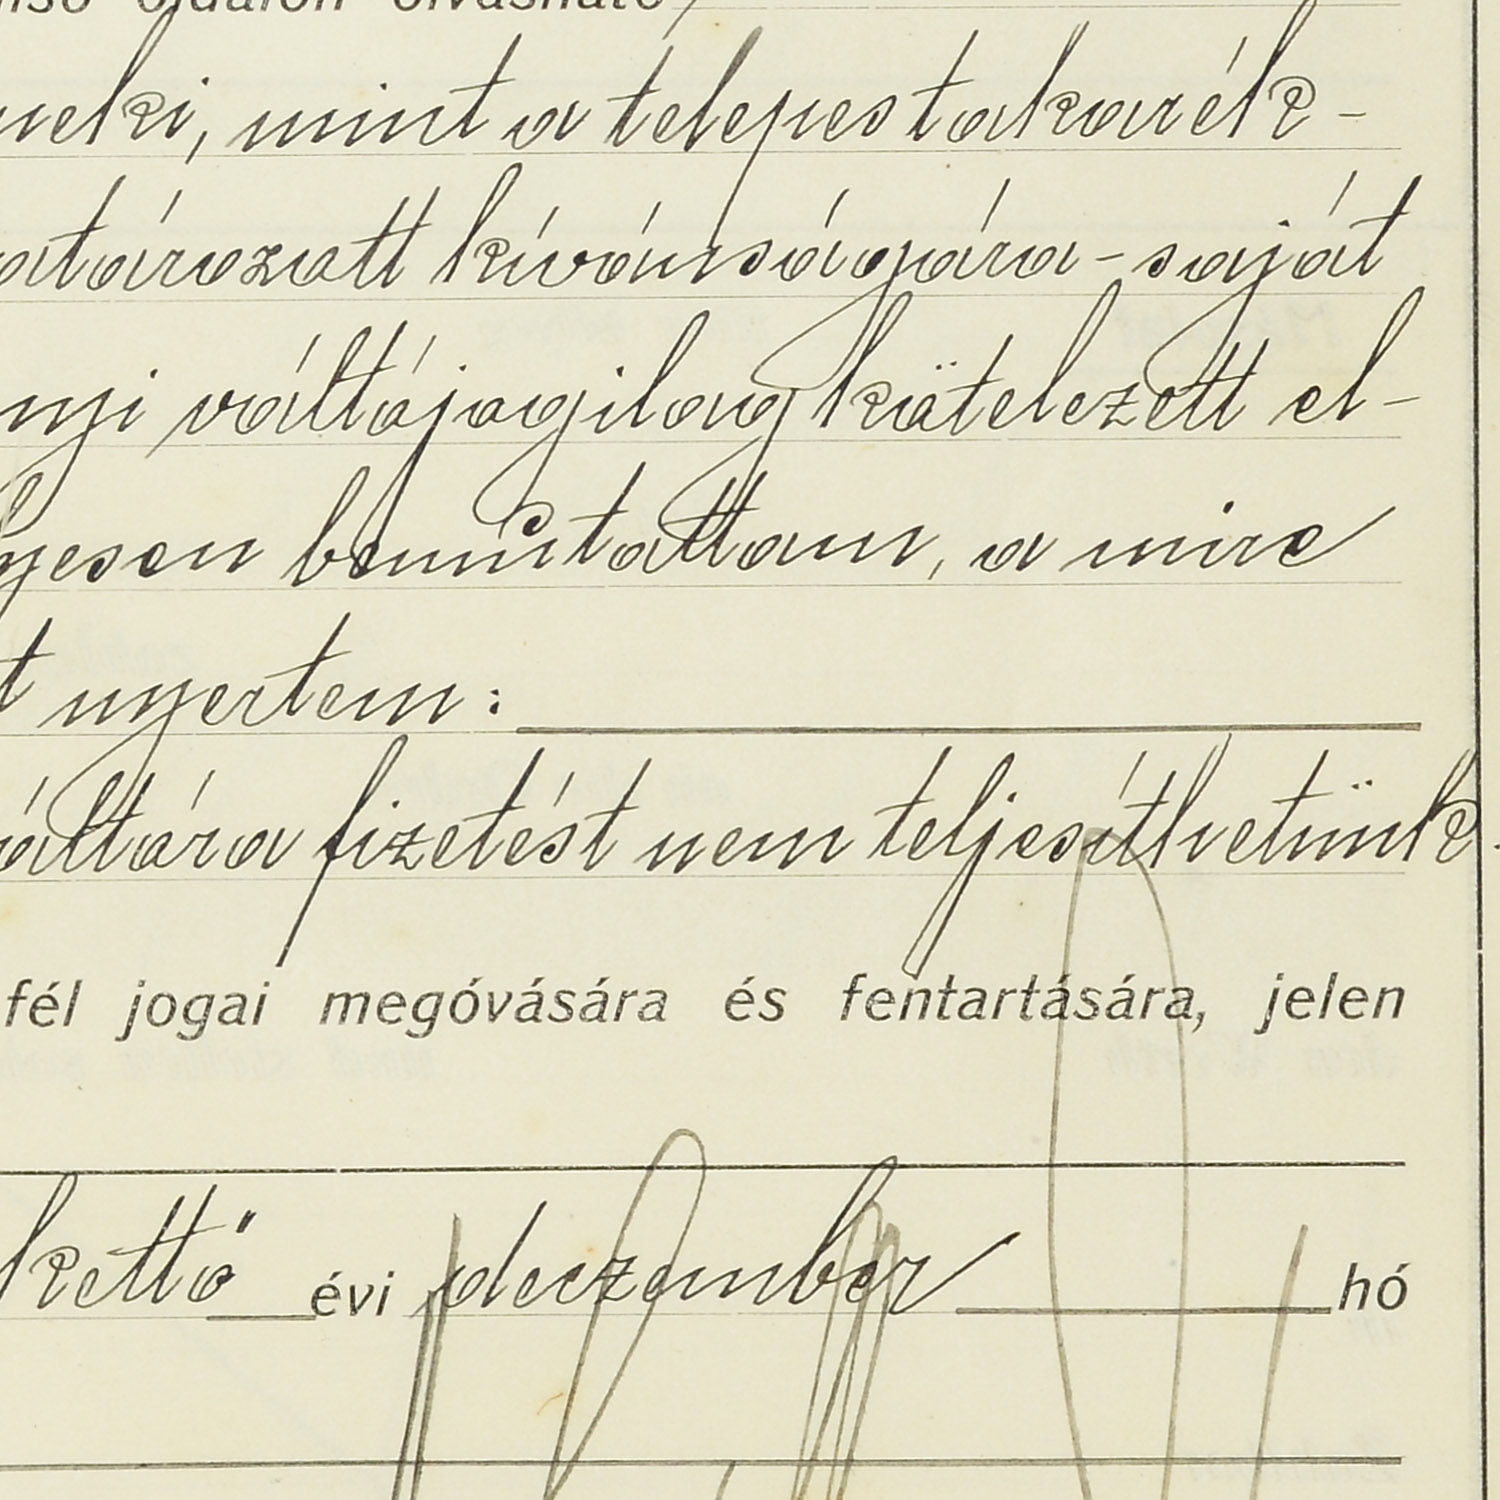 oldalon olvasható,
neki, mint a telepes takarék-
kívánságára - saját
váltójogilag kötelezett el-
bemutattam, a mire
nyertem:
fizetést nem teljesíthetünk.
fél jogai megóvására és fentartására, jelen
kettő évi deczember hó